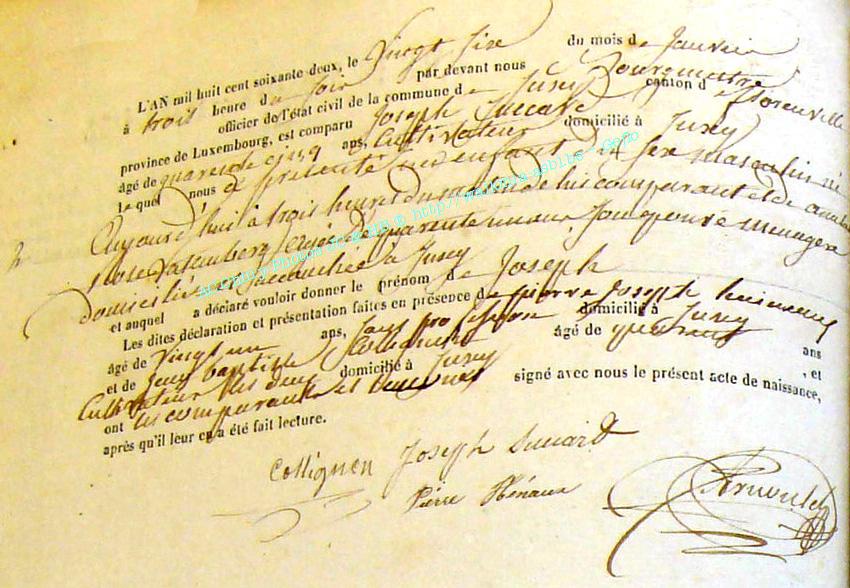 L'AN mil huit cent soixante-deux, le vingt sixe du mois de Janvier
à trois heure du soir par devant nous Bourgmestre
officier de l'état civil de la commune de Jusey canton de Florenville
province de Luxembourg, est comparu Joseph
âgé de quarente cinq ans, cultivateur domicilié à Jusey
le quel nous a présenté un enfant du sexe masculin né
Aujourd'hui à trois heures du matin de lui comparant et de
Rose agée de quarente un ans, son epouse menagere
domiciliée accouchée à Jusey
et auquel a déclaré vouloir donner le prénom de Joseph
Les dites déclaration et présentation faites en présence de pierre Joseph
âgé de vingt un ans, sans profession domicilié à Jusey
et de Jean baptiste Collignon âgé de ans
cultivateur les deux domicilié à Jusey , et
ont les comparants et temoins signé avec nous le présent acte de naissance,
après qu'il leur en a été fait lecture.
Collignon Joseph
Pierre Hénaux